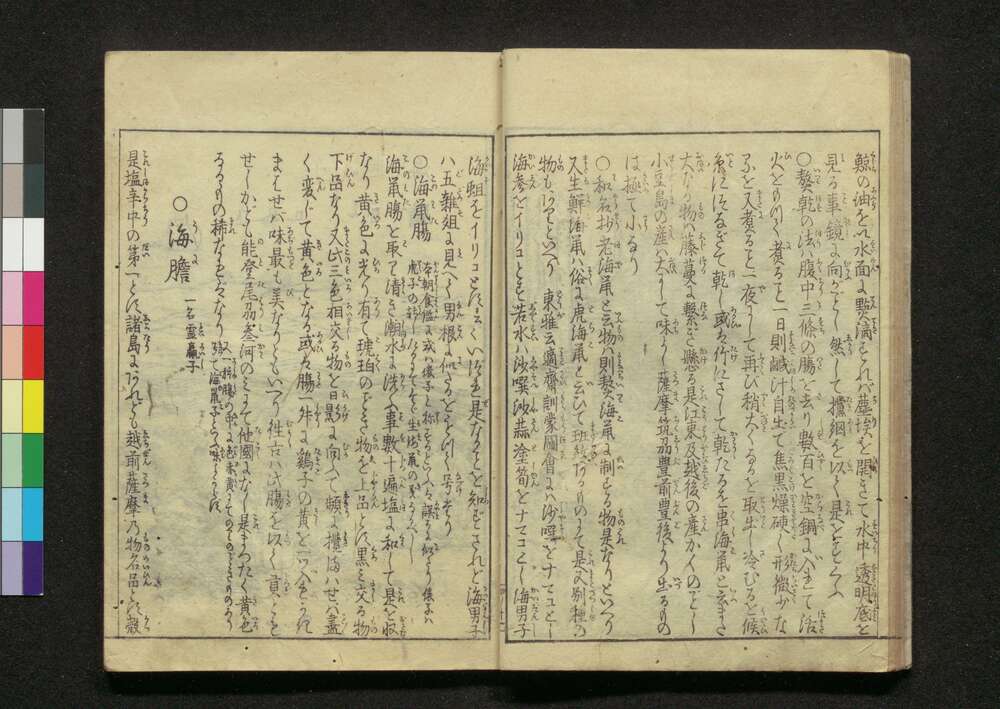 鯨の油を以水面に點滴すれバ塵埃を開きて水中透明底を
見る事鏡に向がごとし然して攩網を以てく是をとらふ
○熬乾の法ハ腹中三條の膓を去り數百を空鍋に入れて活
火をもつてく煮ること一日則鹹汁自出で焦黒燥硬く形微少な
るを又煮ること一夜にして再び稍大くなるを取出し冷むるを候
糸につなぎて乾し或ハ竹にさして乾たるを串海鼠と云また
大なる物ハ藤蔓に繋ぎ懸る是江東及越後の産かくのごとし
小豆島の産ハ大にして味よし薩摩筑前豊前豊後より出るもの
は極て小なり
○和名抄老海鼠と云物ハ則熬海鼠に制する物是なりといへり
又生鮮海鼠ハ俗に虎海鼠と云ひて斑紋あるものにて是又別種の
物もありといへり 東雅云適齋訓蒙圖會にハ沙噀をナマコとし
海參をイリコとす若水ハ沙噀沙蒜塗筍をナマコとし海男子
海蛆をイリコとす云くいづれ是なることを知らずされど海男子
ハ五雜組に見へて男根に似たるをもつて号たり
○海鼠膓
海鼠膓を取て清き潮水に洗ふ事數十遍塩に和して是を収
なり黄色に光り有て琥珀のごとき物を上品とす黒ミ交る物
下品なり又此三色相交る物を日影に向ふて頻に攪まハせバ盡
く変じて黄色となる或ハ膓一升に鶏子の黄を一ツ入れて
まハせバ味最も美なりともいへり往古ハ此膓を以て貢とも
せしかども能登尾刕参河のミにて他國になし是まつたく黄色
なるもの稀なる故なり
○海膽 一名霊蠃子
是塩辛中の第一とす諸島にあれども越前薩摩の物名品とす殻